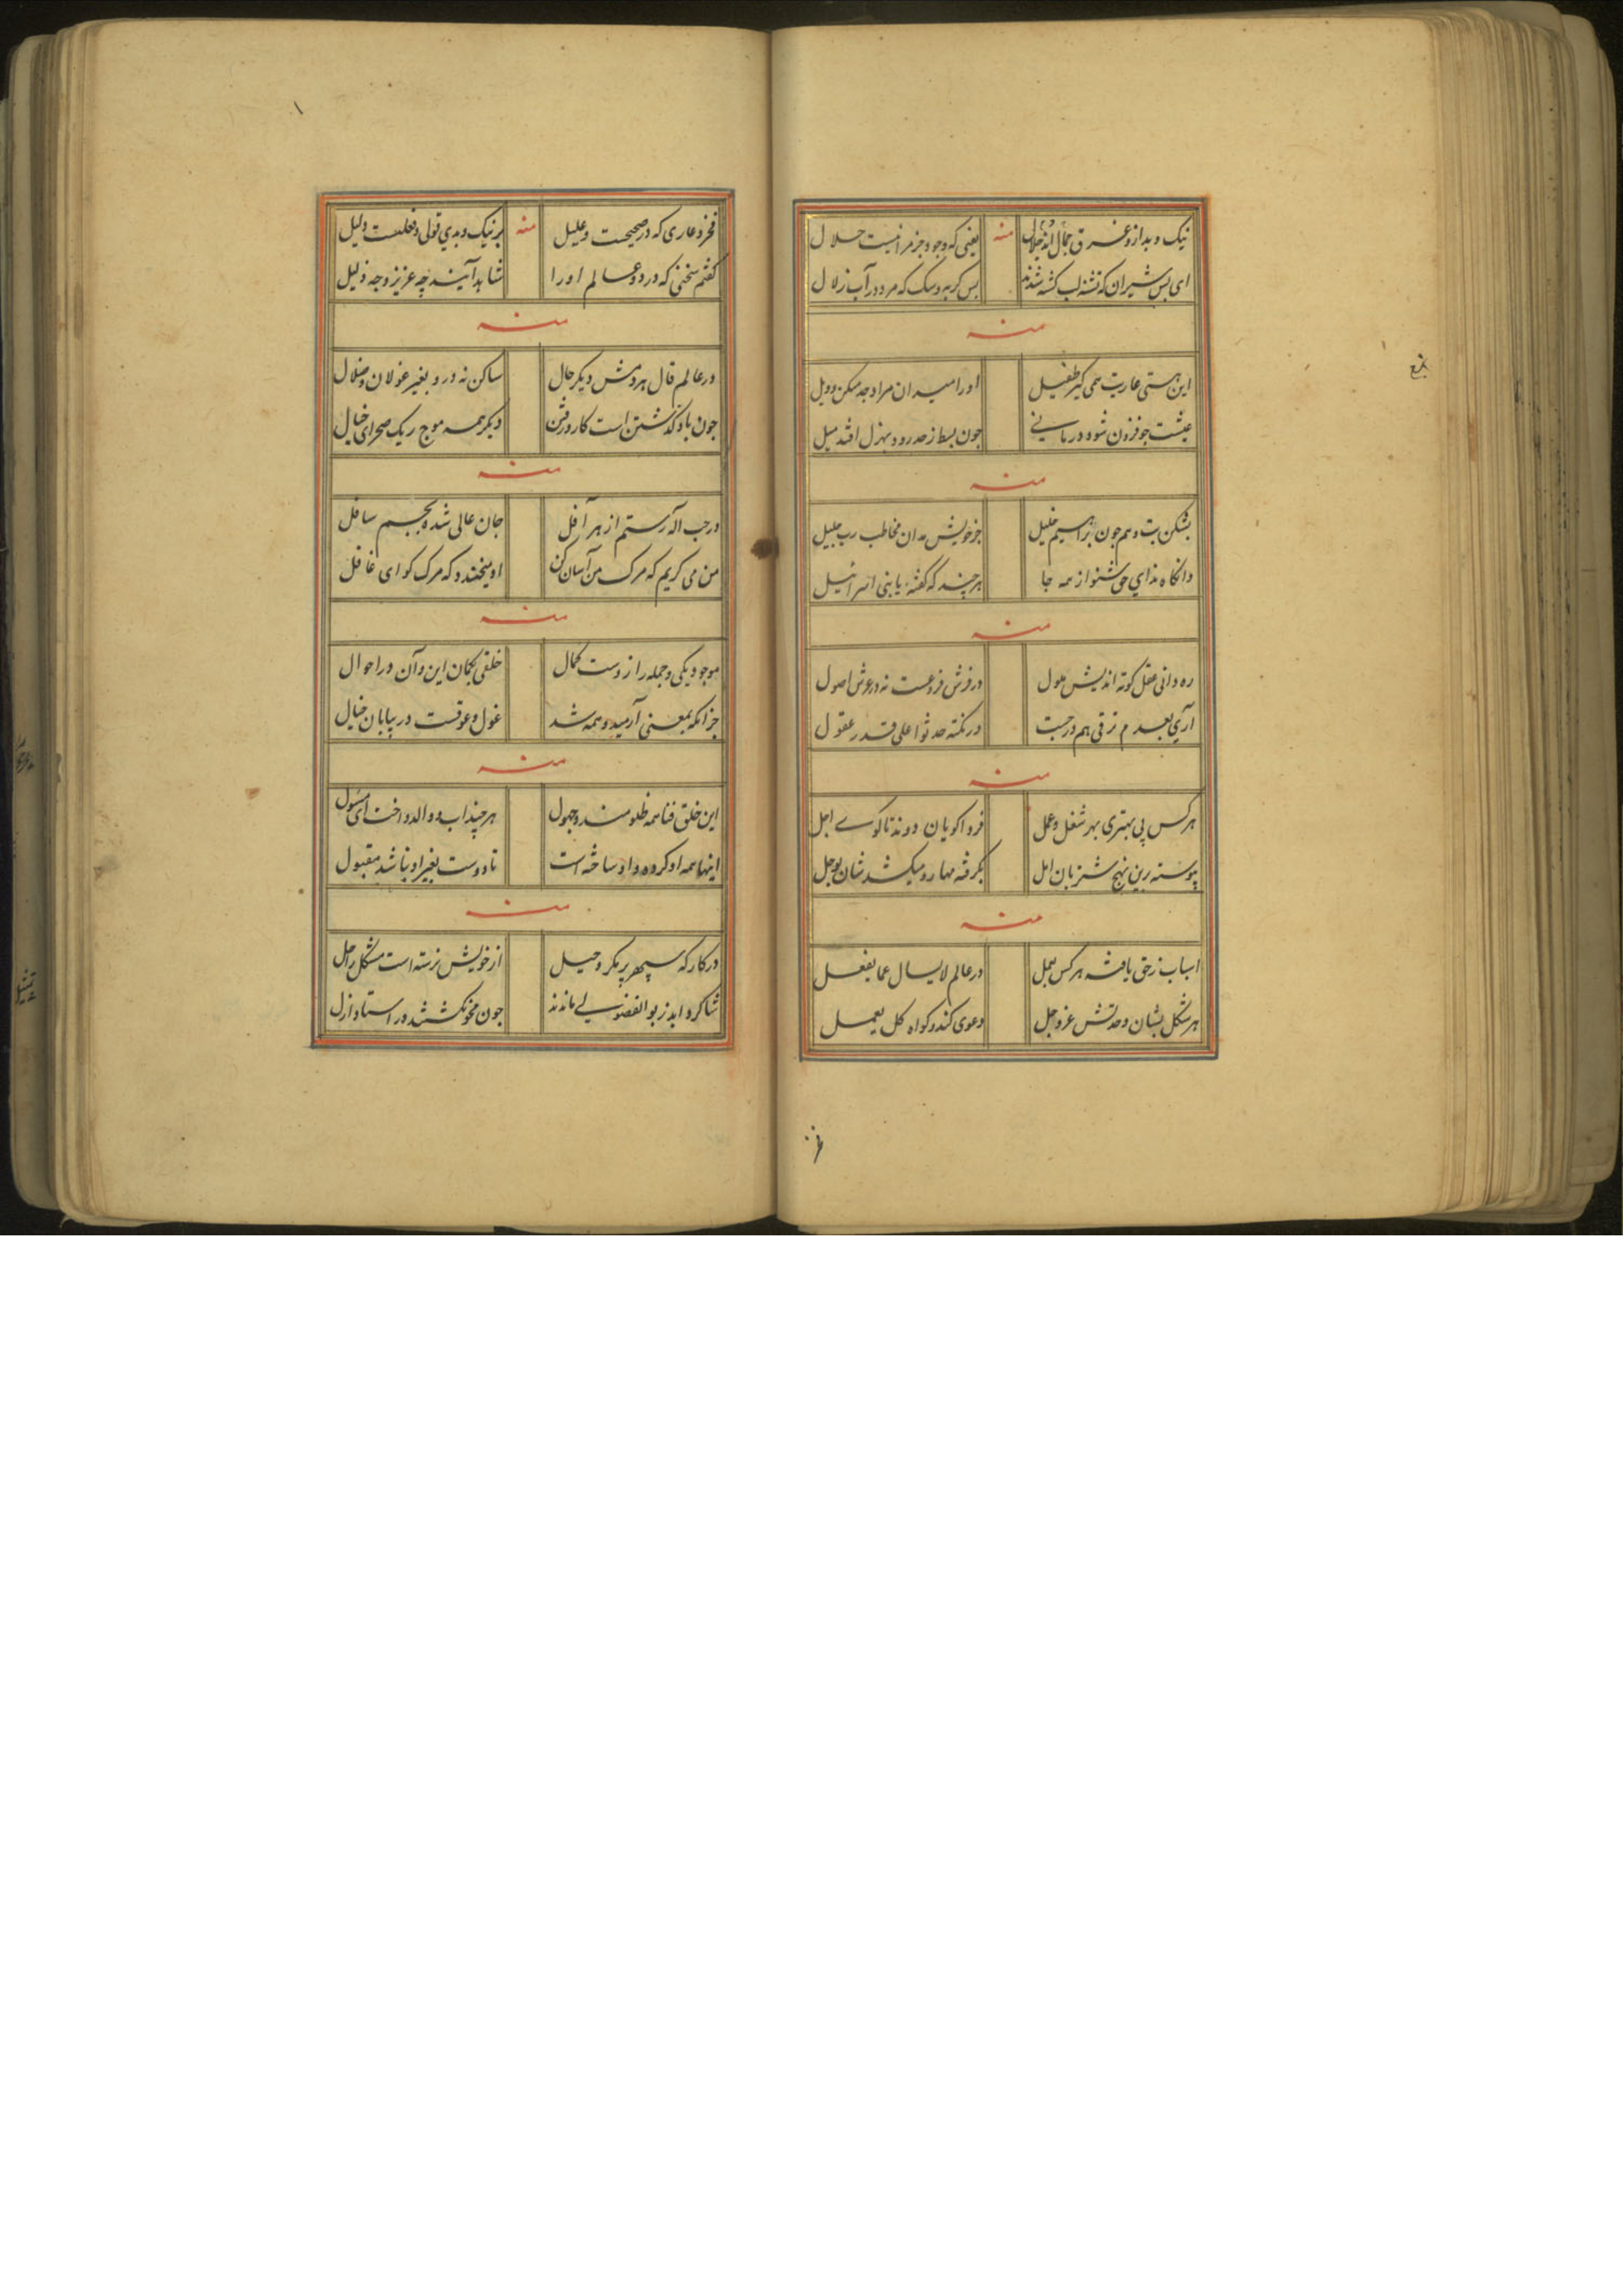 نیک و بد ازو غرق جمال اند و جلال منه یعنی که وجود جز مرا نیست حلال
ای بس شیران که تشنه لب کشته شدند بس کربه و سک که مرد در آب زلال
منه
این هستی عاریت همی کیر طفیل او را میدان مراد جد مکن و ویل
عیشت چو فزون شود در مانی چون بسط ز حد رود بهزل افتد میل
منه
بشکن بت وهم چون براهیم خلیل جز خویش مدان مخاطب رب جلیل
وانکاه ندای حق شنو از همه جا هر چند که کفته یا بنی اسرائیل
منه
ره دانی عقل کوته اندیش مول در فرش فروعست نه در عرش اصول
آری بعدم ز قی هم در جست در نکته حدثوا علی قدر عقول
منه
هر کس پی بهتری بهر شغل و عمل فردا کویان دوند تا کوی اجل
پیوسته برین نهج شتربان امل بکرفته مهار و میکشد شان بوحل
منه
اسباب ز حق یافته هر کس بعمل در عالم لا یسال عما یفعل
هر شکل بشان وحدتش عز و جل دعوی کند و کواه کل یعمل
فخر و عاری که در صحیحست و علیل منه بر نیک و بدی قولی و فعلیست دلیل
کفتم سخنی که در دو عالم او را شاید آینه چه عزیز و چه ذلیل
منه
در عالم قال هر دمش دیکر حال ساکن نه درو بغیر غولان و ضلال
چون باد کذشتن است کار و رفتن دیکر همه موج ریک صحرای خیال
منه
در حب اله رستم از هر آفل جان عالی شده بجسم سافل
من می کریم که مرک من آسان کن او میخندد که مرک کو ای غافل
منه
موجود یکی و جمله را زوست کمال خلقی بکمان این و آن در احوال
جز آنکه بمعنی آرمید و همه شد غول و عوقست در بیابان خیال
منه
این خلق فنا همه ظلومند و جهول هر چند اب و والد و اخت ای مسول
اینها همه او کرده و او ساخته است تا دوست بغیر او نباشد مقبول
منه
در کارکه سپهر پر مکر و حیل از خویش نرسته است مشکل راحل
شاکرد ابد ز بو الفضولی ماندند چون محو نکشتند در استاد ازل